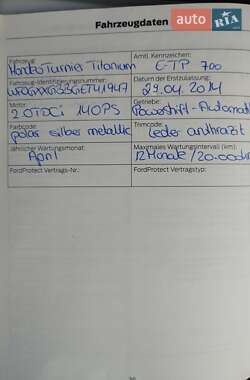 Fahrzeugdaten
auto RIA
Fahrzeug: Amtl. Kennzeichen:
Mondeo Turnier Titanium E-TP 700
Fahrzeug-Identifizierungsnummer: Datum der Erstzulassung:
29.04.2014
Motor: Getriebe:
2.0TDCi 140PS Powershift-Automatik
Farbcode: Trimcode:
polar silber metallic Leder anthrazit
Jährlicher Wartungsmonat: Maximales Wartungsintervall (km):
April 12 Monate / 20.000km
FordProtect Vertrags-Nr.: FordProtect Vertragstyp: